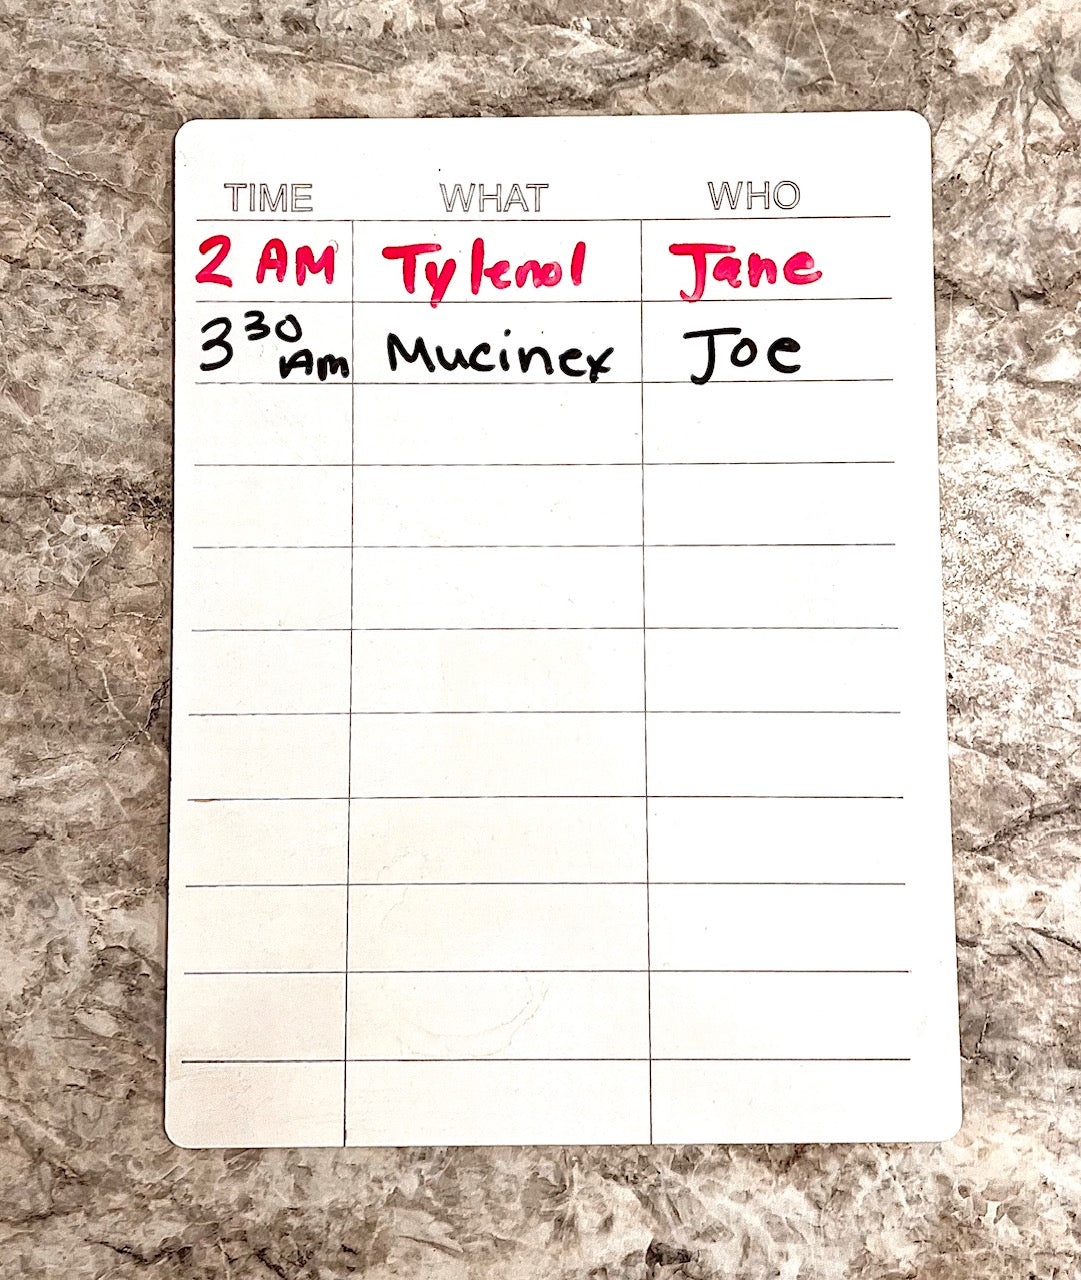 TIME WHAT WHO
2 AM Tylenol Jane
3 30 Am Mucinex Joe